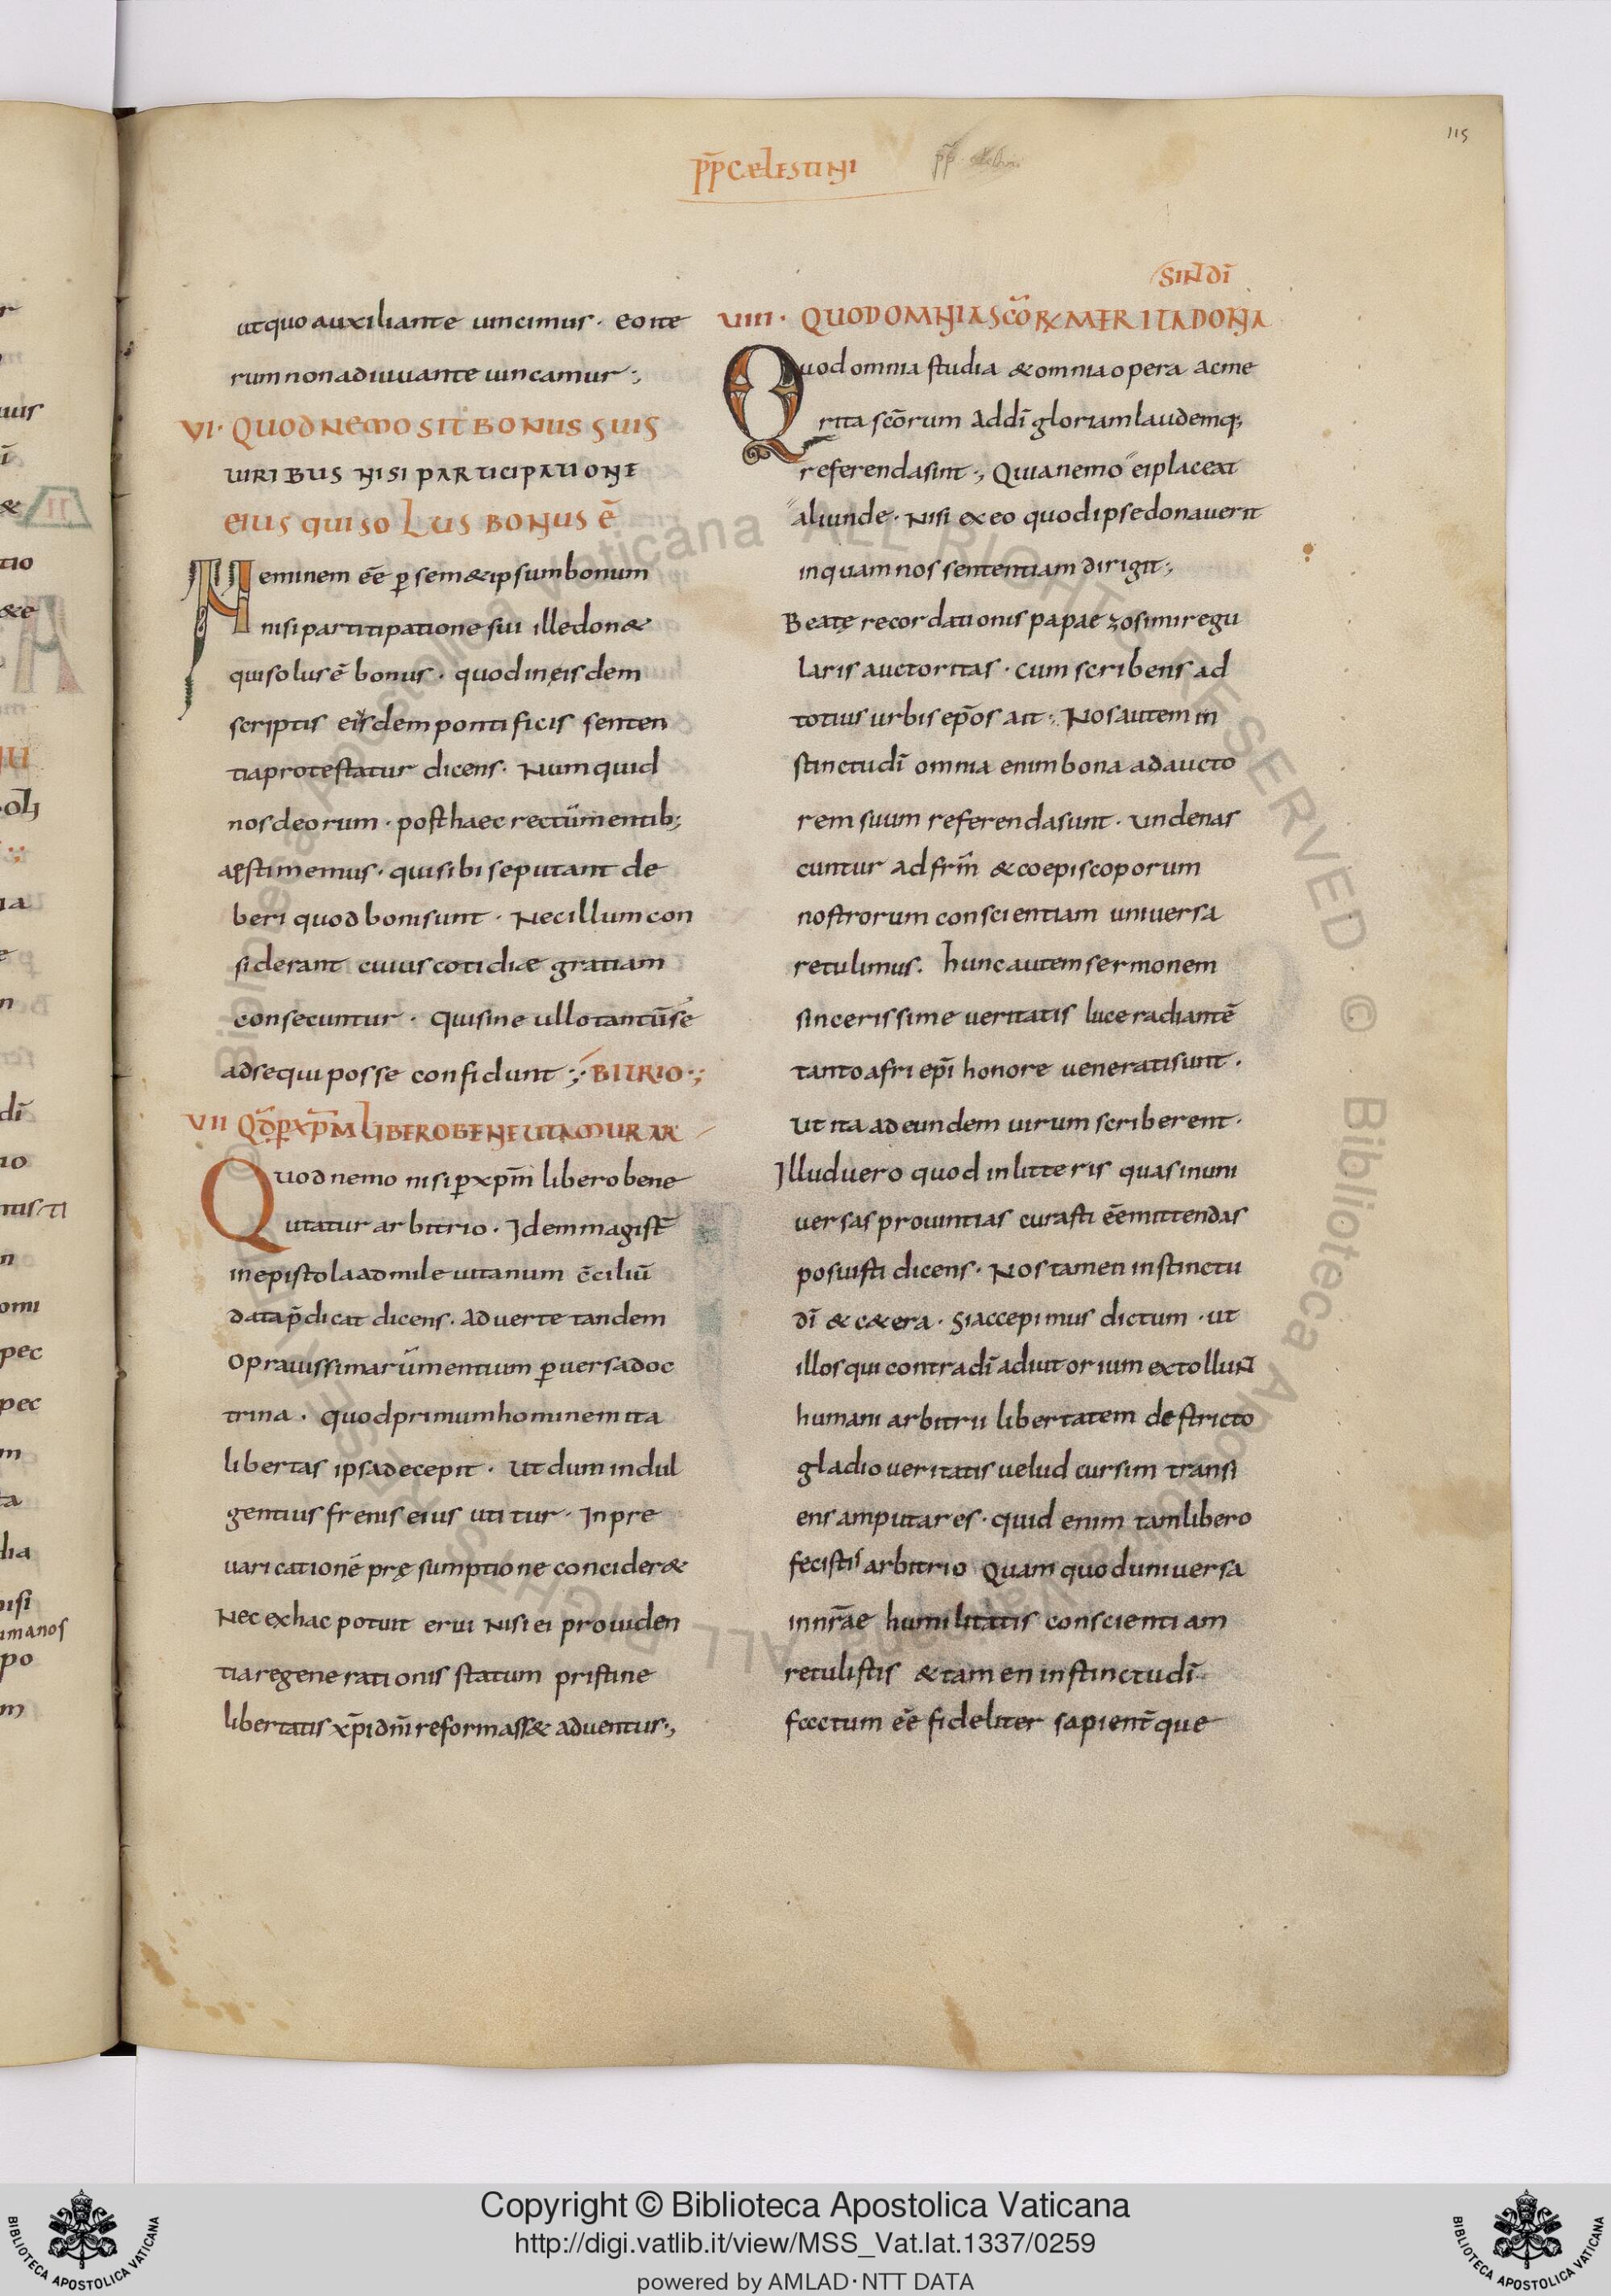 115
pp̄ cælestini
ut quo auxiliante uincimus · eo ite
rum non adiuuante uincamur ·;
VI · QUOD NEMO SIT BONUS SUIS
UIRIBUS NISI PARTICIPATIONE
EIUS QUI SOLUS BONUS Ē
Neminem eē ꝑ semetipsum bonum
nisi partitipatione sui ille donet
qui solus ē bonus · quod in eisdem
scriptis eisdem pontificis senten
tia protestatur dicens · Numquid
nos de orum · post haec rectū mentib;
aęstimemus · qui sibi se putant de
beri quod boni sunt · Nec illum con
siderant cuius cotidiæ gratiam
consecuntur · qui sine ullo tantū se
adsequi posse confidunt ·;· BITRIO ·;
VII QD̄ P XP̄M LIBERO BENE UTAMUR AR
Quod nemo nisi ꝑ xp̄m libero bene
utatur arbitrio · Idem magist̄
in epistola ad mileuitanum c̄ciliū
data p̄dicat dicens · Aduerte tandem
O prauissimarū mentium ꝑuersa doc
trina · quod primum hominem ita
libertas ipsa decepit · Ut dum indul
gentius frenis eius utitur · In pre
uaricationē pręsumptione concideret
Nec ex hac potuit erui nisi ei prouiden
tia regenerationis statum pristine
libertatis xp̄i dn̄i reformasset aduentus ·;
SINT DĪ
VIIII · QUOD OMNIA SC̄ORꝜ MERITA DONA
Quod omnia studia & omnia opera ac me
rita sc̄orum ad dī gloriam laudemq;
referenda sint ·; Quia nemo ei placeat
aliunde · Nisi ex eo quod ipse donauerit
in quam nos sententiam dirigit ·;
Beatę recordationis papae zosimi regu
laris auctoritas · cum scribens ad
totius urbis ep̄os ait · Nos autem in
stinctu dī omnia enim bona ad aucto
rem suum referenda sunt · unde nas
cuntur ad frm̄ & coepiscoporum
nostrorum conscientiam uniuersa
retulimus · hunc autem sermonem
sincerissime ueritatis luce radiantē
tanto afri ep̄i honore uenerati sunt ·
Ut ita ad eundem uirum scriberent ·
Illud uero quod in litteris quas in uni
uersas prouintias curasti eē mittendas
posuisti dicens · Nos tamen instinctu
dī & cetera · Si accepimus dictum · ut
illos qui contra dī adiutorium extollunt
humani arbitrii libertatem destricto
gladio ueritatis uelud cursim transi
ens amputares · quid enim tam libero
fecistis arbitrio Quam quod uniuersa
in nr̄ae humilitatis conscientiam
retulistis & tamen instinctu dī
factum eē fideliter sapient̄que
Copyright © Biblioteca Apostolica Vaticana
http://digi.vatlib.it/view/MSS_Vat.lat.1337/0259
powered by AMLAD·NTT DATA